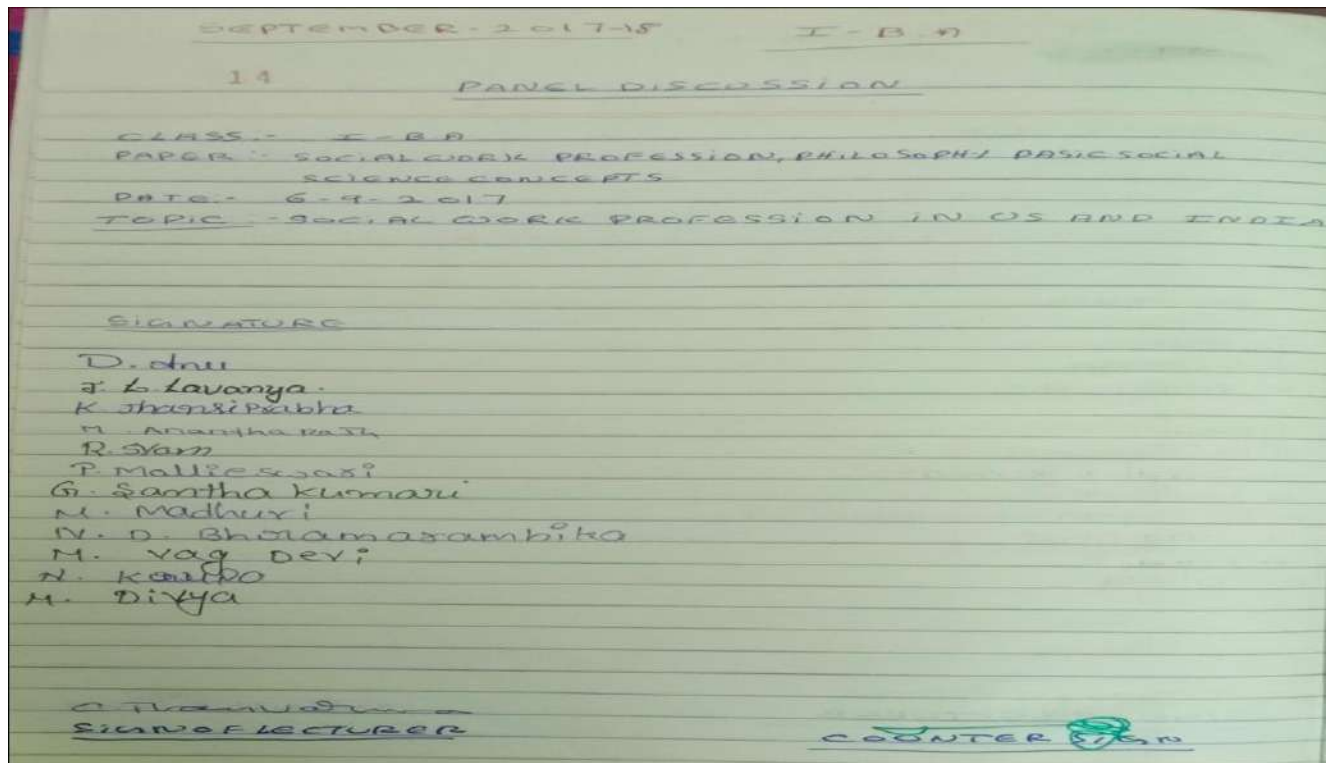 SEPTEMBER - 2017-18 I - B.A
14
PANEL DISCUSSION
CLASS :- I - B A
PAPER :- SOCIAL WORK PROFESSION, PHILOSOPHY BASIC SOCIAL
SCIENCE CONCEPTS
DATE :- 6-9-2017
TOPIC - SOCIAL WORK PROFESSION IN US AND INDIA
SIGNATURE
D. Anu
J. L. Lavanya.
K Jhansi Prabha
M. Anantha
R. Syam
P. Mallieswari
G. Santha Kumari
M. Madhuri
N. D. Bhramarambika
M. Vag Devi
N.
M. Divya
SIGN OF LECTURER
COUNTER SIGN